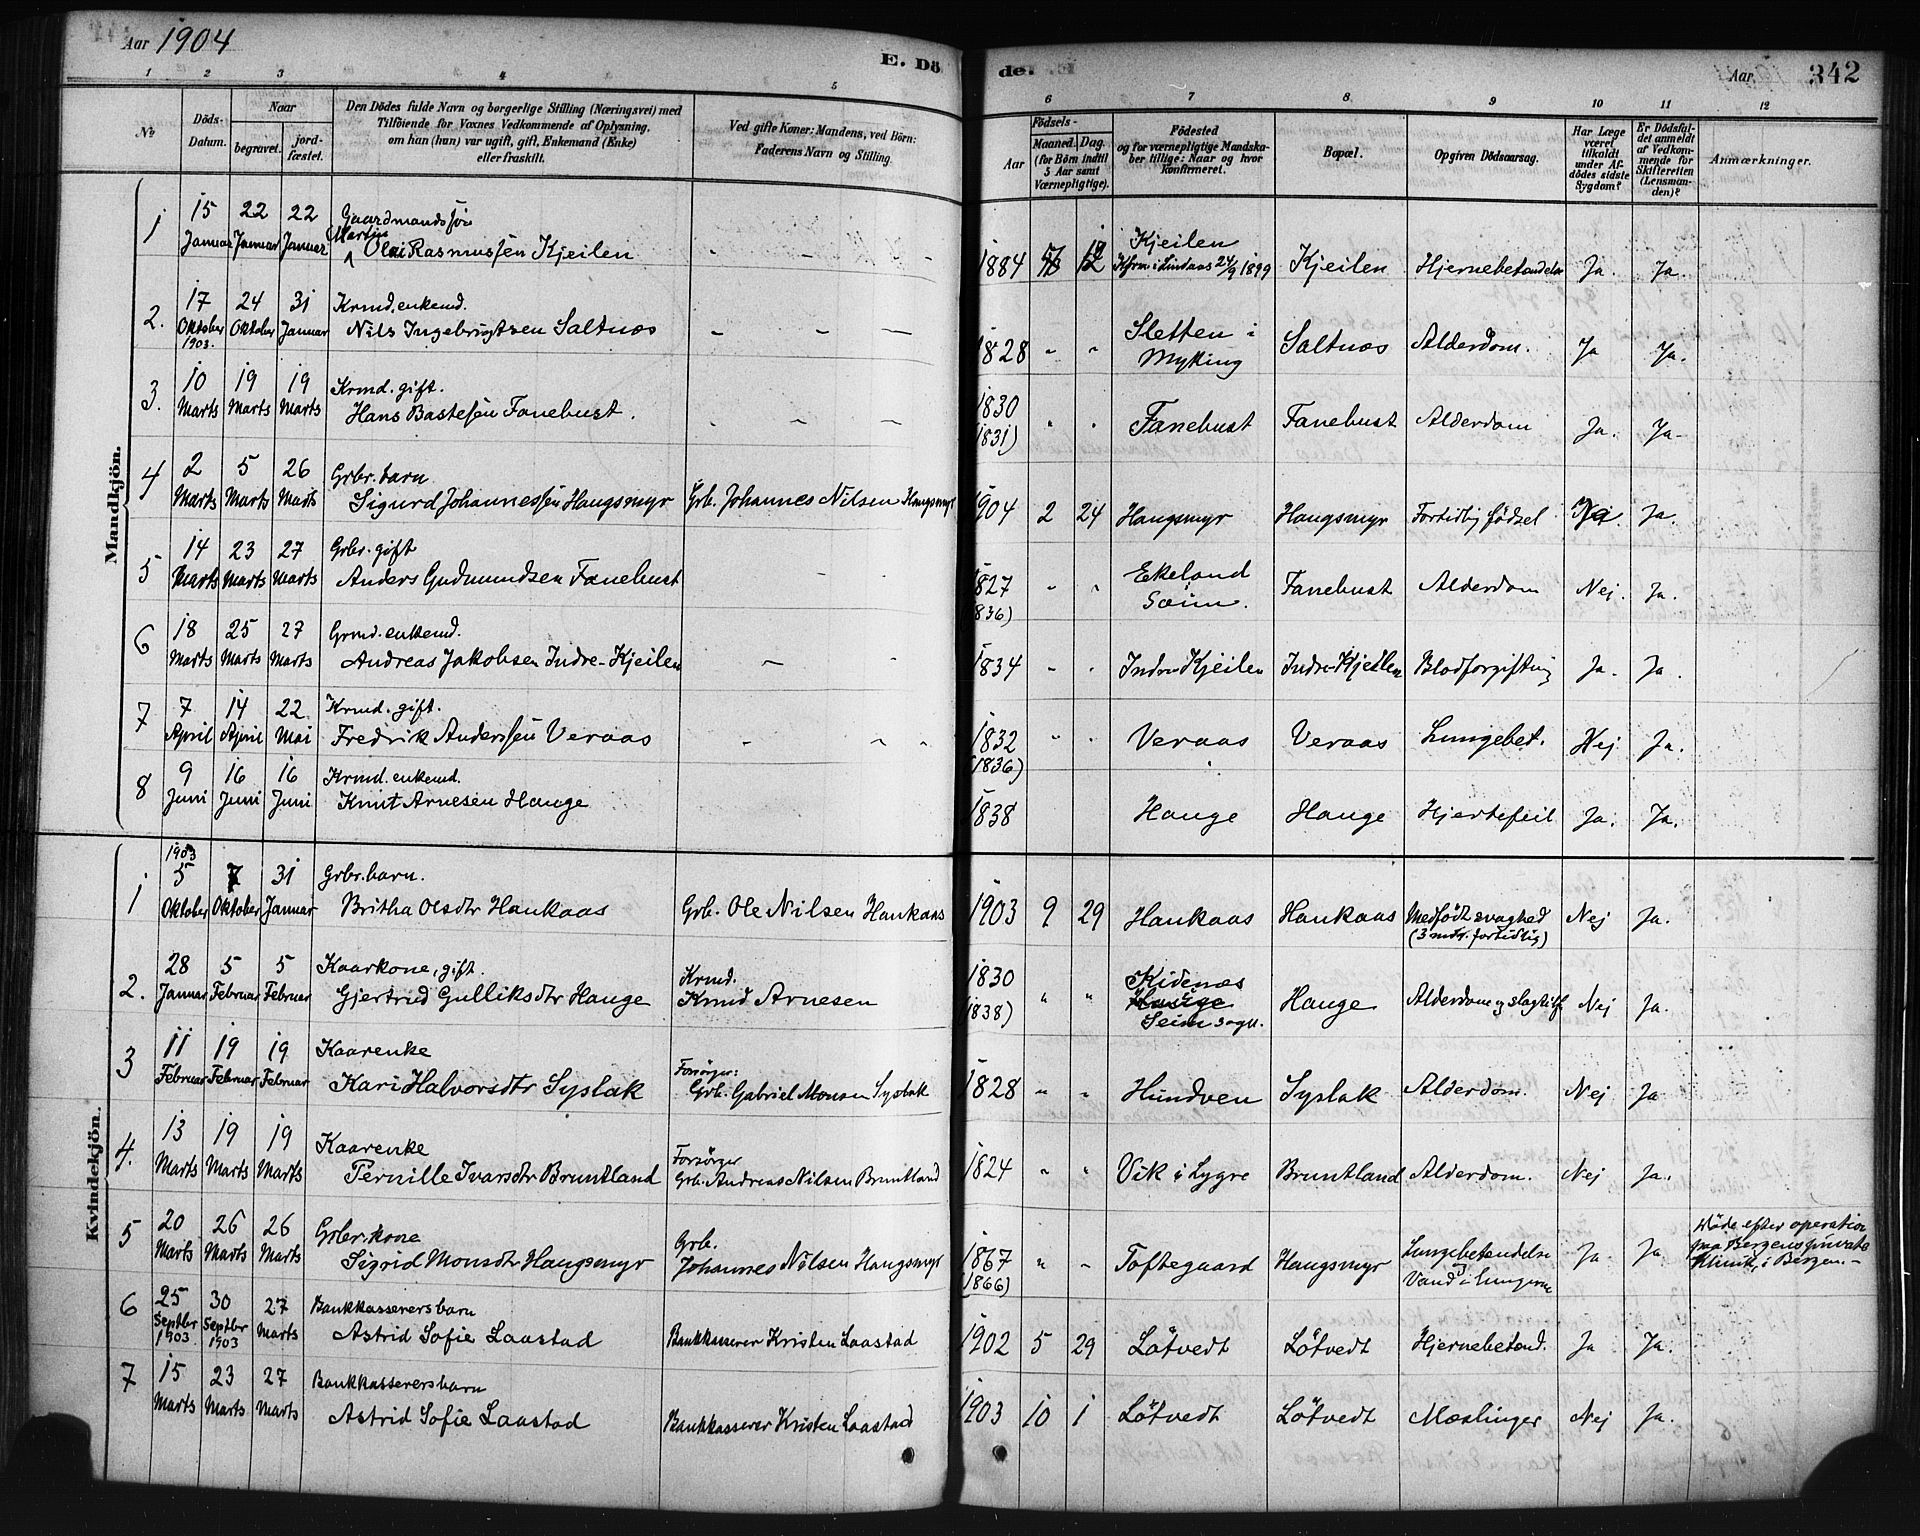 Aar 1904
E. Dö
de.
Aar
342
1 2 3 4 5 6 7 8 9 10 11 12
No
Döds-
Datum.
Naar
begravet.
jord-
fæstet.
Den Dödes fulde Navn og borgerlige Stilling (Næringsvei) med
Tilföiende for Voxnes Vedkommende af Oplysning,
om han (hun) var ugift, gift, Enkemand (Enke)
eller fraskilt.
Ved gifte Koner: Mandens, ved Börn:
Faderens Navn og Stilling.
Födsels-
Aar
Maaned.
Dag.
(for Börn indtil
5 Aar samt
Værnepligtige).
Födested
og for værnepligtige Mandska-
ber tillige: Naar og hvor
konfirmeret.
Bopæl.
Opgiven Dödsaarsag.
Har Læge
været
tilkaldt
under Af-
dödes sidste
Sygdom?
Er Dödsfal-
det anmeldt
af Vedkom-
mende for
Skifteretten
(Lensman-
den)?
Anmærkninger.
Mandkjön.
1 15 22 22 Gaardmandssön
Januar Januar Januar Martin Olai Rasmussen Kjeilen 1884 12 Kjeilen
Kfrm. i Lindaas 24/9 1899 Kjeilen Hjernebetændelse Ja. Ja.
2. 17 24 31 Krmd. enkemd.
Oktober Oktober Januar Nils Ingebrigtsen Saltnæs 1828 " " Sletten i
1903. Myking Saltnæs Alderdom. Ja Ja.
3. 10 19 19 Krmd. gift.
Marts Marts Marts Hans Bastesen Fanebust. 1830
(1831) " " Fanebust Fanebust Alderdom Ja. Ja-
4 2 5 26 Grbr. barn
Marts Marts Marts Sigurd Johannessen Haugsmyr Grb. Johannes Nilsen Haugsmyr 1904 2 24 Haugsmyr Haugsmyr Fortidlig födsel Ja. Ja.
5 14 23 27 Grbr. gift
Marts Marts Marts Anders Gudmundsen Fanebust 1827
(1836) " " Ekeland
Sæim. Fanebust Alderdom Nej. Ja.
6 18 25 27 Grmd. enkemd.
Marts Marts Marts Andreas Jakobsen Indre-Kjeilen 1834 " " Indre-Kjeilen Indre-Kjeilen Blodforgiftnig Ja. Ja.
7 7 14 22 Krmd. gift.
April April Mai Fredrik Anderssen Veraas 1832
(1836) " " Veraas Veraas Lungebet. Nej Ja.
8 9 16 16 Krmd. enkemd.
Juni Juni Juni Knut Arnesen Hauge 1838 Hauge Hauge Hjertefeil Ja. Ja.
Kvindekjön.
1903
1 5 7 31 Grbr. barn.
Oktober Oktober Januar Britha Olsdtr Haukaas Grb. Ole Nilsen Haukaas 1903 9 29 Haukaas Haukaas Medfödt svaghed
(3 mdr. fortidlig) Nej Ja.
2. 28 5 5 Kaarkone, gift.
Januar Februar Februar Gjertrud Gulliksdtr Hauge Krmd.
Knud Arnesen 1830
(1838) " " Skidenæs
Hauge
Seim sogn. Hauge Alderdom og slagtilf. Nej Ja.
3 11 19 19 Kaarenke
Februar Februar Februar Kari Halvorsdtr Syslak Forsörger:
Grb. Gabriel Monsen Syslak 1828 " " Hundven Syslak Alderdom. Nej Ja
4. 13 19 19 Kaarenke
Marts Marts Marts Pernille Ivarsdtr Bruntland Forsörger
Grb. Andreas Nilsen Bruntland 1824 " " Vik i Lygre Bruntland Alderdom. Nej Ja.
5 20 26 26 Grbr. kone
Marts Marts Marts Sigrid Monsdtr Haugsmyr Grb.
Johannes Nilsen Haugsmyr 1867
(1866) " " Toftegaard Haugsmyr Lungebetændelse
Vand i lungerne Ja Ja. Döde efter operation
paa Bergens private
Klinik, i Bergen.-
6 25 30 27 Bankkasserersbarn
Septbr Septbr Marts Astrid Sofie Laastad Bankkasserer Kristen Laastad 1902 5 29 Lötvedt Lötvedt Hjernebetænd. Ja Ja.
1903 1903
7 15 23 27 Bankkasserersbarn
Marts Marts Marts Astrid Sofie Laastad Bankkasserer Kristen Laastad 1903 10 1 Lötvedt Lötvedt Mæslinger Nej Ja.